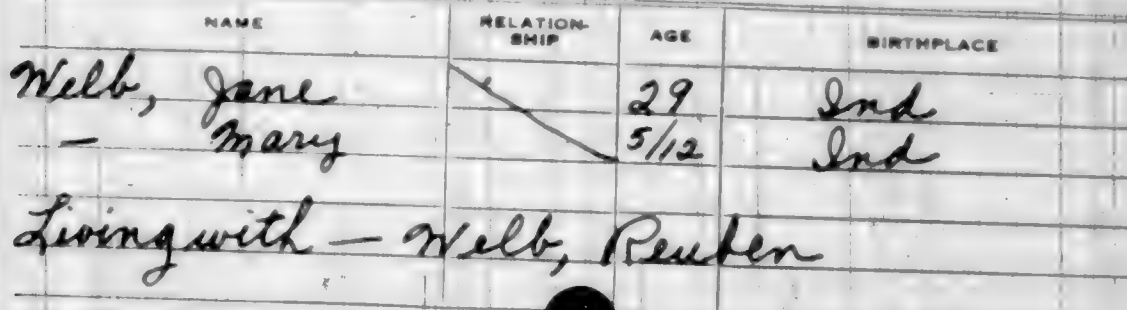 NAME RELATION-SHIP AGE BIRTHPLACE
Welb, Jane 29 Ind
— Mary 5/12 Ind
Living with — Welb, Reuben